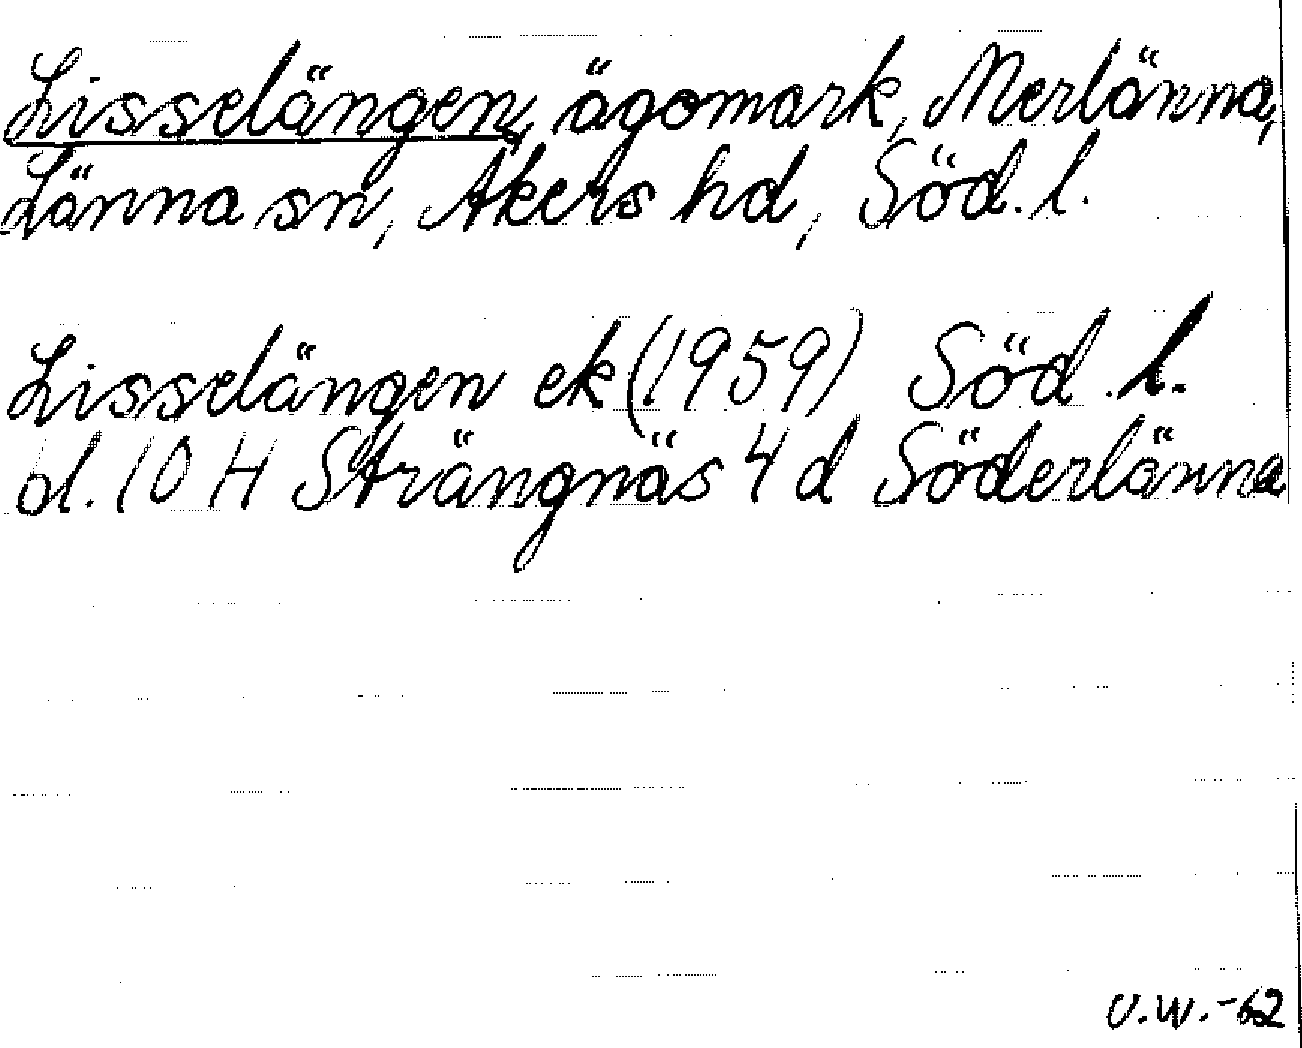 Lisselängen, ägomark, Merlänna,
Länna sn, Åkers hd, Söd. l.
Lisselängen ek (1959) Söd. l.
bl. 10 H Strängnäs 4 d Söderlänna
U.W.-62